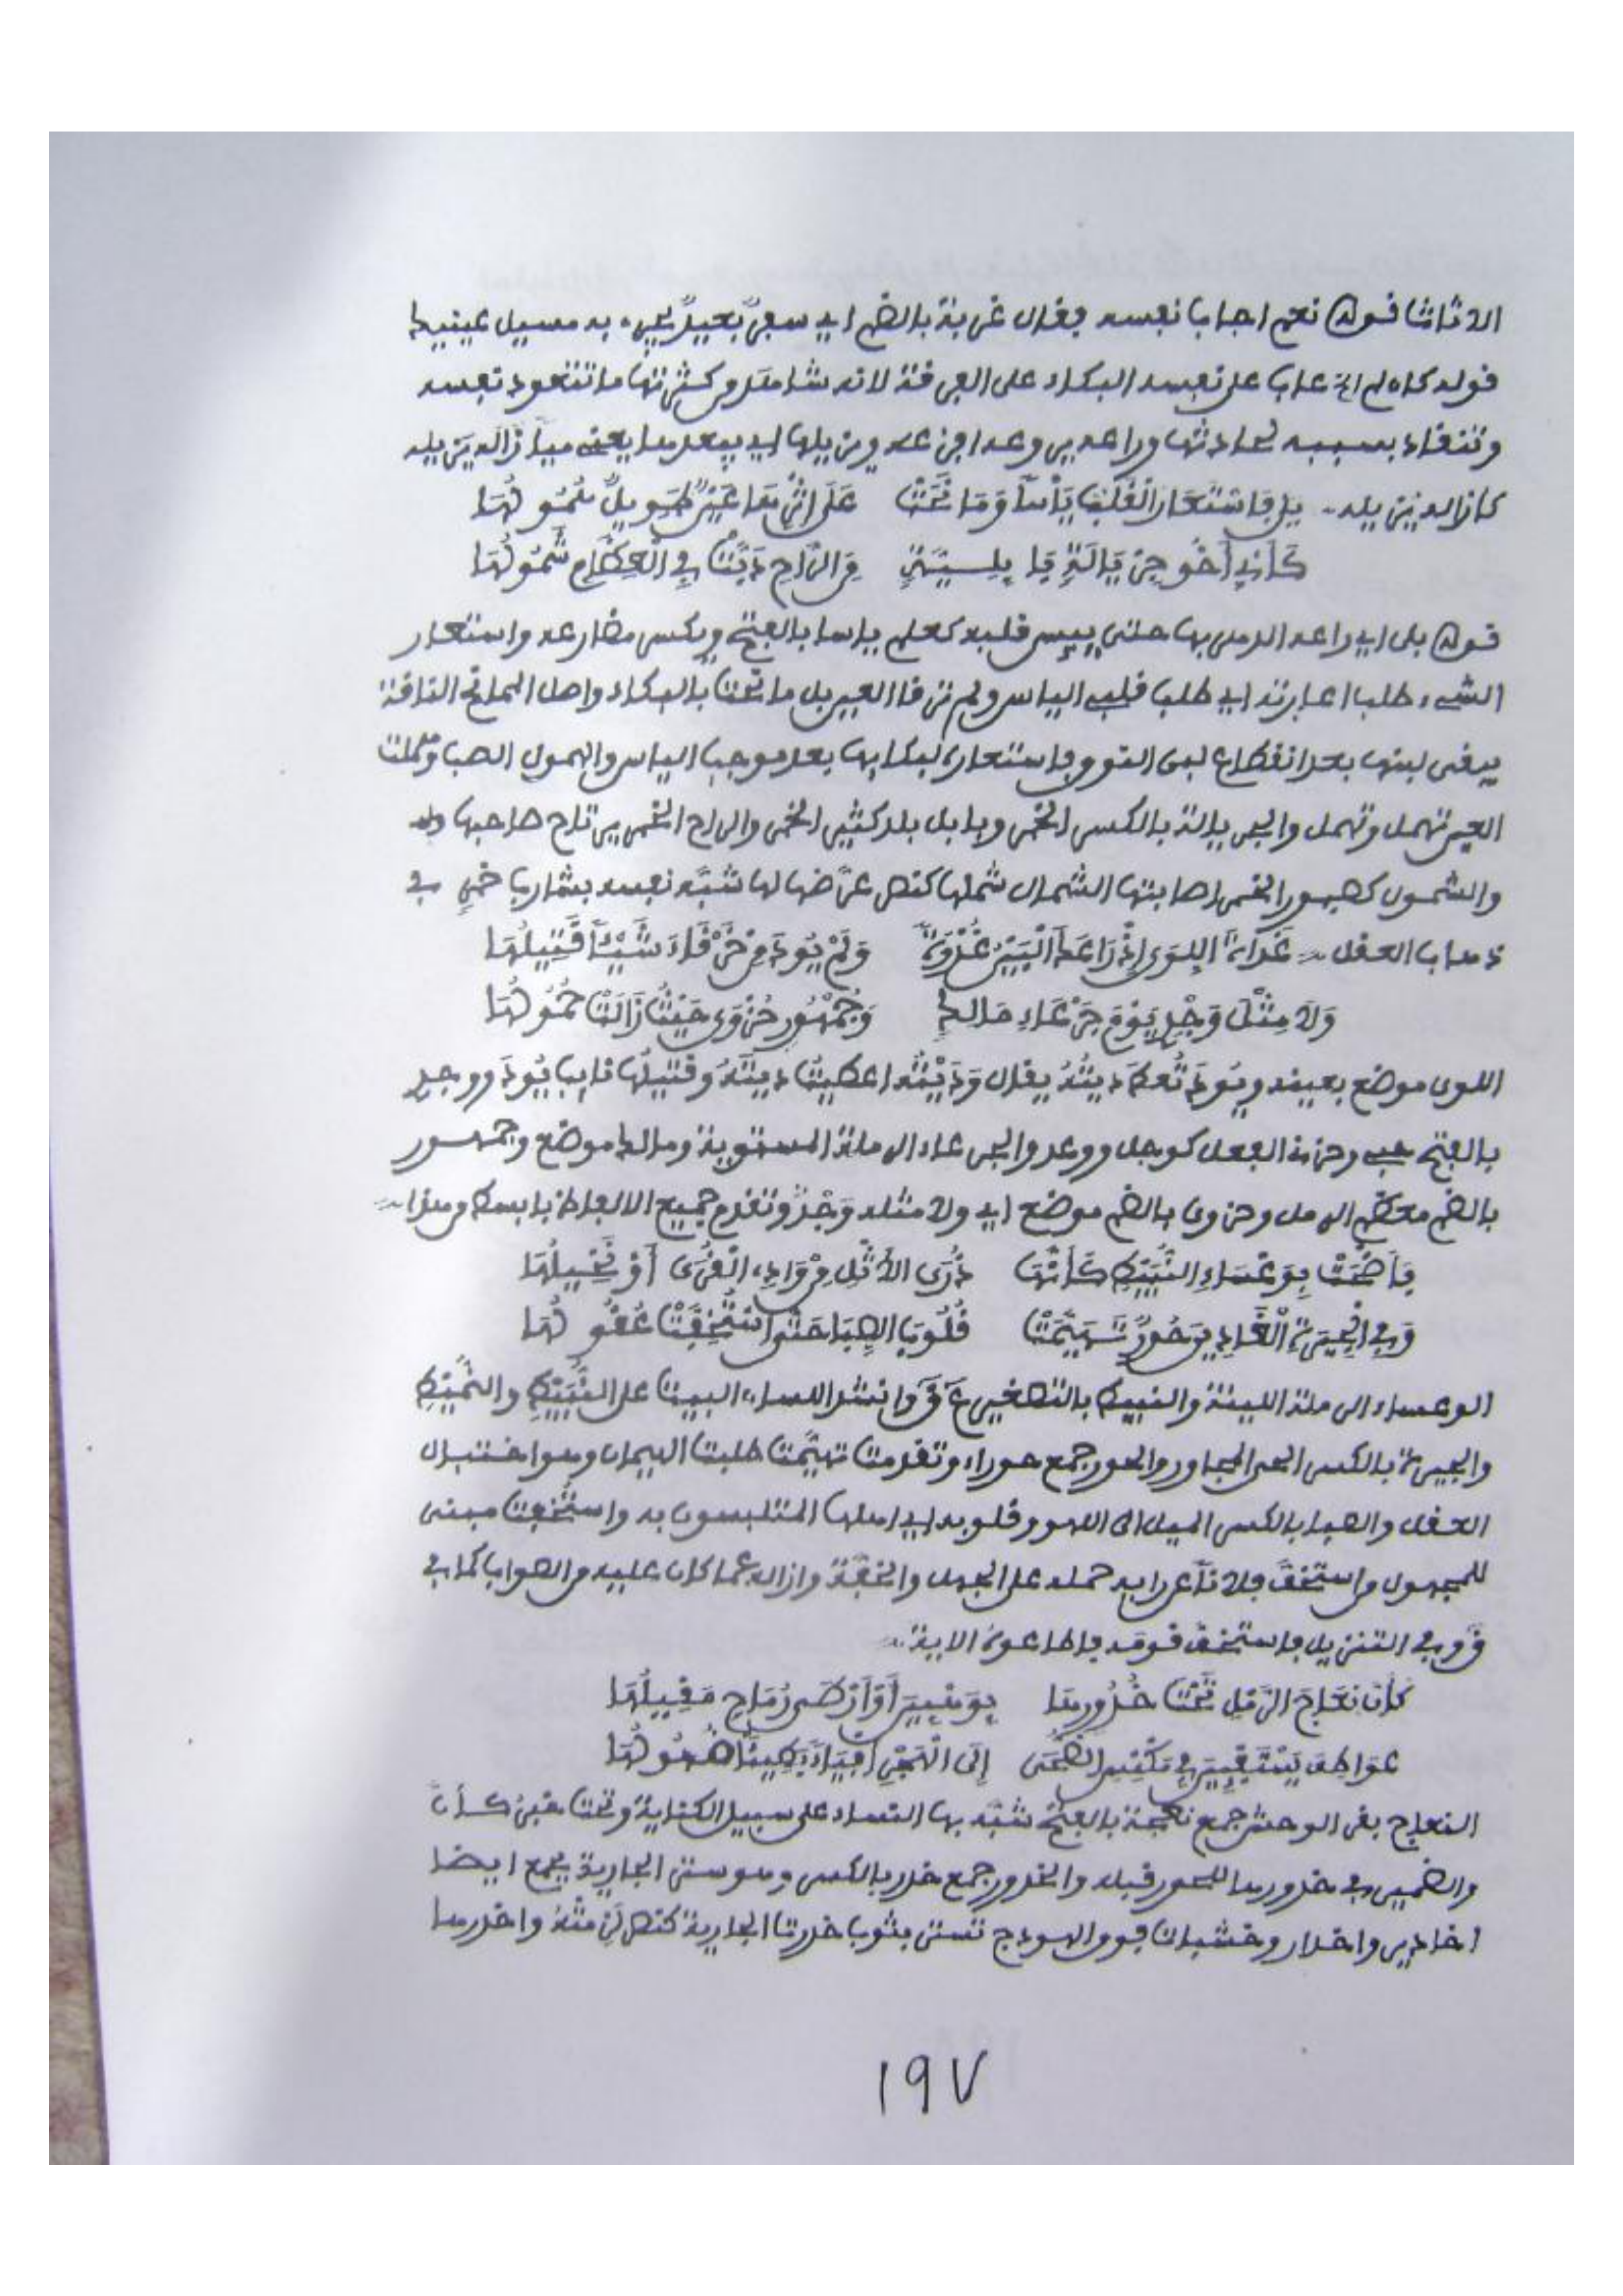 الاثاثا قوله نعم اجاب نفسه فقال غربة بالضم اي سفر بعيد يجيء به مسيل عينيك
قوله كان لم الخ عاب على نفسه البكاء على الفرقة لانه شاهد من كثرتها ما تتعود نفسه
وتنقاد بسببه لعادتها وراعه يروعه افزعه ويزيلها اي يبعدها يعني
كان الدين يله بلى فاستعار القلب يأسا وما نحت على اثرها عين طويل همولها
كأني أخو جريالة بابلية من الراح دبت في العظام شمولها
قوله بلى اي راعه الدهر بها حتى ييس قلبه كعلم ياسا بالفتح ويكسر مضارعه واستعار
الشيء طلب اعارته اي طلب قلبي الياس ولم ترقا العين بل مانحت بالبكاء واصل الممانح الناقة
يبقى لبنها بعد انقطاع لبن النوق فاستعاره لبكايها بعد موجب الياس والهمول الصب وهملت
العين تهمل وتهمل والجريالة بالكسر الخمر وبابل بلد كثير الخمر والراح الخمر يرتاح صاحبها
والشمول كصبور الخمر اصابتها الشمال شملها كنصر عرّضها لها شبّه نفسه بشارب خمر في
ذهاب العقل غداة اللوى إذ راعك البين غدوة ولم يود من خرقاء شيئا قتيلها
ولا مثل وجدي يوم جرعاء مالك وجمهور حزوى حيث زالت حمولها
اللوى موضع بعينه ويود تعط ديته يقال وديته اعطيت ديته وقتيلها نايب يود ووجد
بالفتح حب وحزن والفعل كوجل ووعد والجرعاء الرملة المستوية ومالك موضع وجمهور
بالضم معظم الرمل وحزوى بالضم موضع اي ولا مثله وجد وتقدم جميع الالفاظ بابسط من هذا
فأضحت بوعساء النبيط كأنها ذرى الأثل من وادي القرى أو نخيلها
وفي الجيرة الغادين حور تهيمت قلوب الصبا حتى استخفت عقولها
الوعساء الرملة اللينة والنبيط بالتصغير ع ق وانشد اللسان البيت على النبيط والنميط
والجيرة بالكسر الحي المجاور والحور جمع حوراء وتقدمت تهيّمت طلبت الهيمان وهو اختبال
العقل والصبا بالكسر الميل الى اللهو وقلوبه اي اهلها المتلبسون به واستخفت مبنى
للمجهول من استخفّ فلانا عن رايه حمله على الجهل والخفّة وازاله عما كان عليه من الصواب كما في
ق وفي التنزيل فاستخف قومه فاطاعوه الاية
كأن نعاج الرمل تحت خدورها بوهبين أو أرطى رماح مقيلها
عواطف يستثبتن في مكنس الضحى إلى الهجر أفياء بطيئا ضهولها
النعاج بقر الوحش جمع نعجة بالفتح شبّه بها النساء على سبيل الكناية وتحت خبر كأن
والضمير في خدورها للحور قبله والخدور جمع خدر بالكسر وهو ستر الجارية يجمع ايضا
اخادير واخدار وخشبات فوق الهودج تستر بثوب خدرت الجارية كنصر لزمته واخدرها
١٩٧